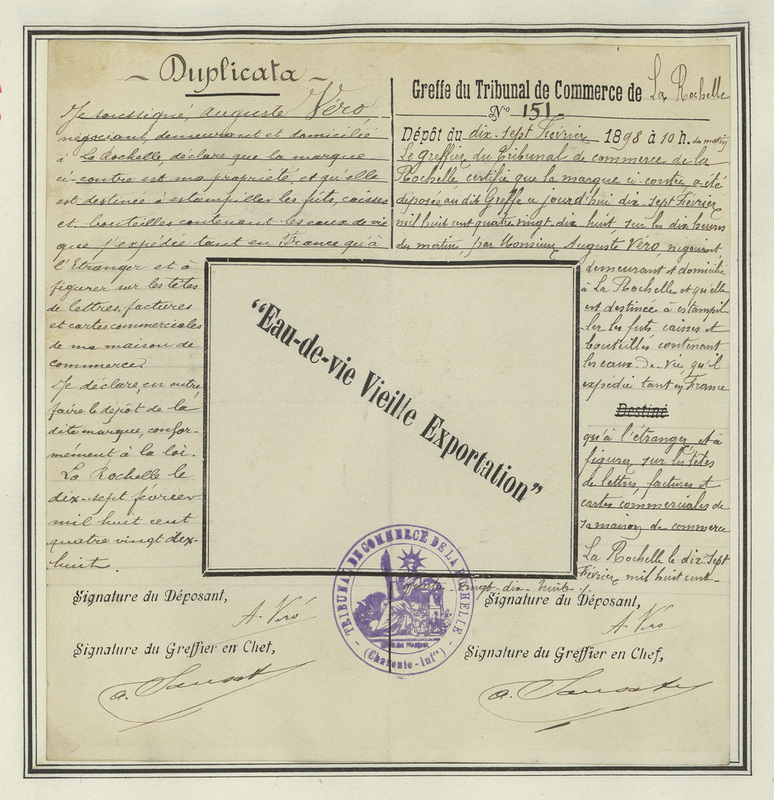 ~ Duplicata ~
Je soussigné, Auguste Véro,
négociant, demeurant et domicilié
à La Rochelle, déclare que la marque
ci-contre est ma propriété et qu'elle
est destinée à estampiller les fûts, caisses
et bouteilles contenant les eaux de vie
que j'expédie tant en France qu'à
l'Etranger et à
figurer sur les têtes
de lettres, factures
et cartes commerciales
de ma maison de
commerce.
Je déclare, en outre,
faire le dépôt de la
dite marque, confor-
mément à la loi.
La Rochelle le
dix-sept février
mil huit cent
quatre vingt dix-
huit.
Signature du Déposant,
A. Véro
Signature du Greffier en Chef,
Greffe du Tribunal de Commerce de La Rochelle
No 151
Dépôt du dix sept Février 1898 à 10 h. du matin
Le greffier du Tribunal de commerce de la
Rochelle certifie que la marque ci-contre a été
déposée au dit Greffe a jourd'hui dix sept Février
mil huit cent quatre vingt dix huit sur les dix heures
du matin, par Monsieur Auguste Véro, négociant
demeurant et domicilié
à La Rochelle et qu'elle
est destinée à estampil-
ler les futs, caisses et
bouteilles contenant
les eaux-de-vie, qu'il
expédie tant en France
Destiné
qu'à l'étranger et à
figurer sur les têtes
de lettres, factures et
cartes commerciales de
sa maison de commerce
La Rochelle le dix sept
Février mil huit cent-
quatre-vingt-dix-huit ./.
Signature du Déposant,
A. Véro
Signature du Greffier en Chef,
“Eau-de-vie Vieille Exportation”
TRIBUNAL DE COMMERCE DE LA ROCHELLE
(Charente-Infre)